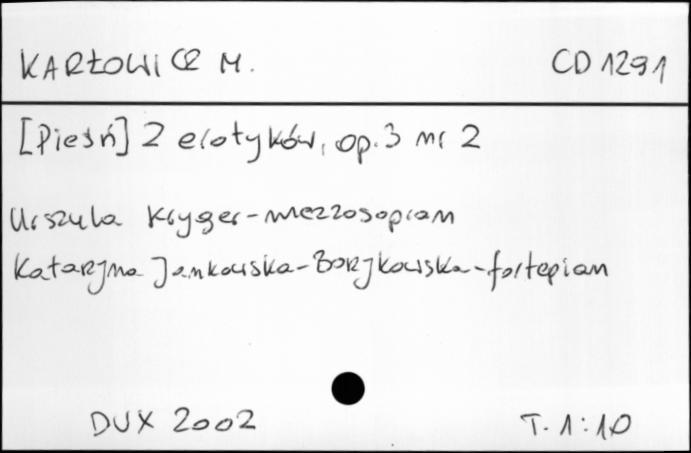 KARŁOWICZ M. CD 1291
[Pieśń] Z erotyków, op. 3 nr 2
Urszula Kryger - mezzosopran
Katarzyna Jankowska-Borzykowska - fortepian
DUX 2002 T. 1:10